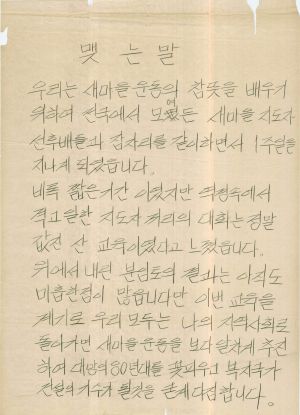 맺 는 말
우리는 새마을 운동의 참뜻을 배우기
위하여 전국에서 모였든 새마을 지도자
선후배들과 잠자리를 같이하면서 1주일을
지나게 되였습니다.
비록 짧은 기간 이였지만 역경속에서
격고 일한 지도자 끼리의 대화는 정말
값진 산 교육이였다고 느꼈습니다.
위에서 내린 분임토의 결과는 아직도
미흡한점이 많읍니다만 이번 교육을
계기로 우리 모두는 나의 지역사회로
돌아가면 새마을 운동을 보다 알차게 추진
하여 대망의 80년대를 꽃피우고 복지국가
건설의 기수가 될것을 굳게 다짐합니다.